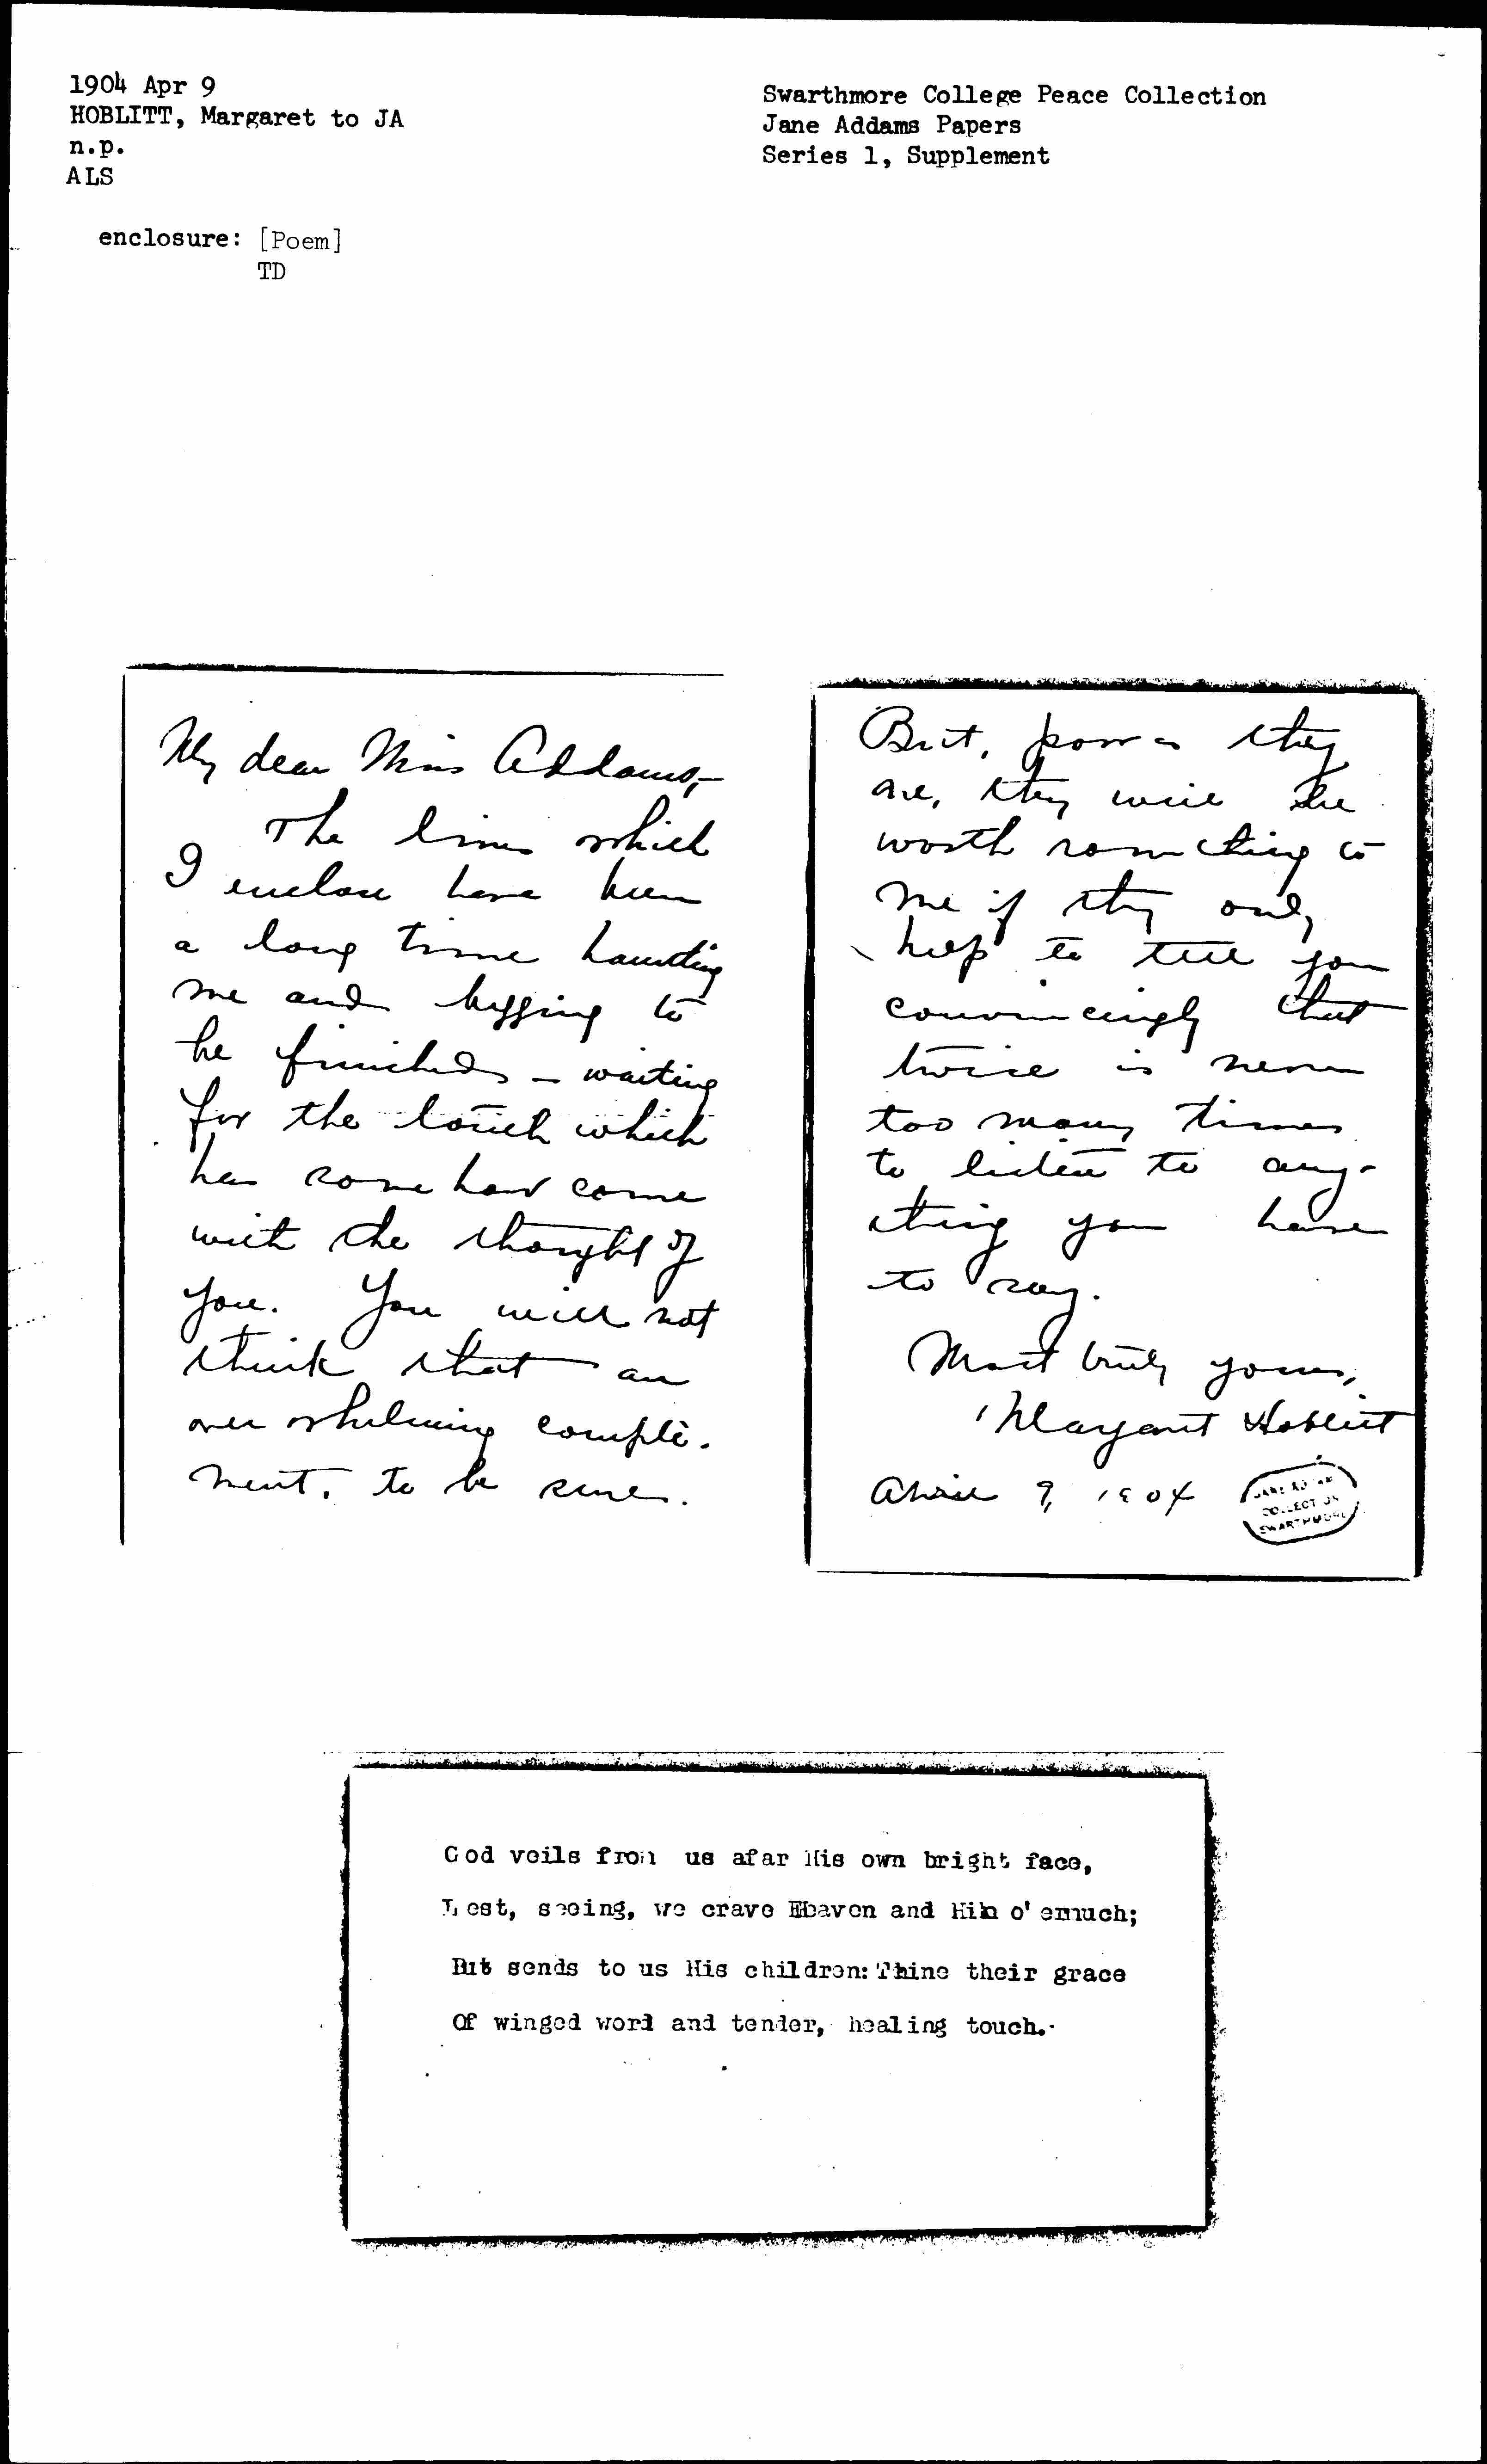 1904 Apr 9
HOBLITT, Margaret to JA
n.p.
ALS
enclosure: [Poem]
TD
Swarthmore College Peace Collection
Jane Addams Papers
Series 1, Supplement
My dear Miss Addams,-
The lines which
I enclose have been
a long time haunting
me and begging to
be finished - waiting
for the touch which
has some how come
with the thought of
you. You will not
think that an
over whelming compli-
ment, to be sure.
But, poor as they
are, they will be
worth something to
me if they only
help to tell you
convincingly that
twice is never
too many times
to listen to any-
thing you have
to say.
Most truly yours,
Margaret Hoblitt
April 9, 1904
JANE ADDAMS
COLLECTION
SWARTHMORE
God veils from us afar His own bright face,
Lest, seeing, we crave Heaven and Him o'ermuch;
But sends to us His children: Thine their grace
Of winged word and tender, healing touch.-